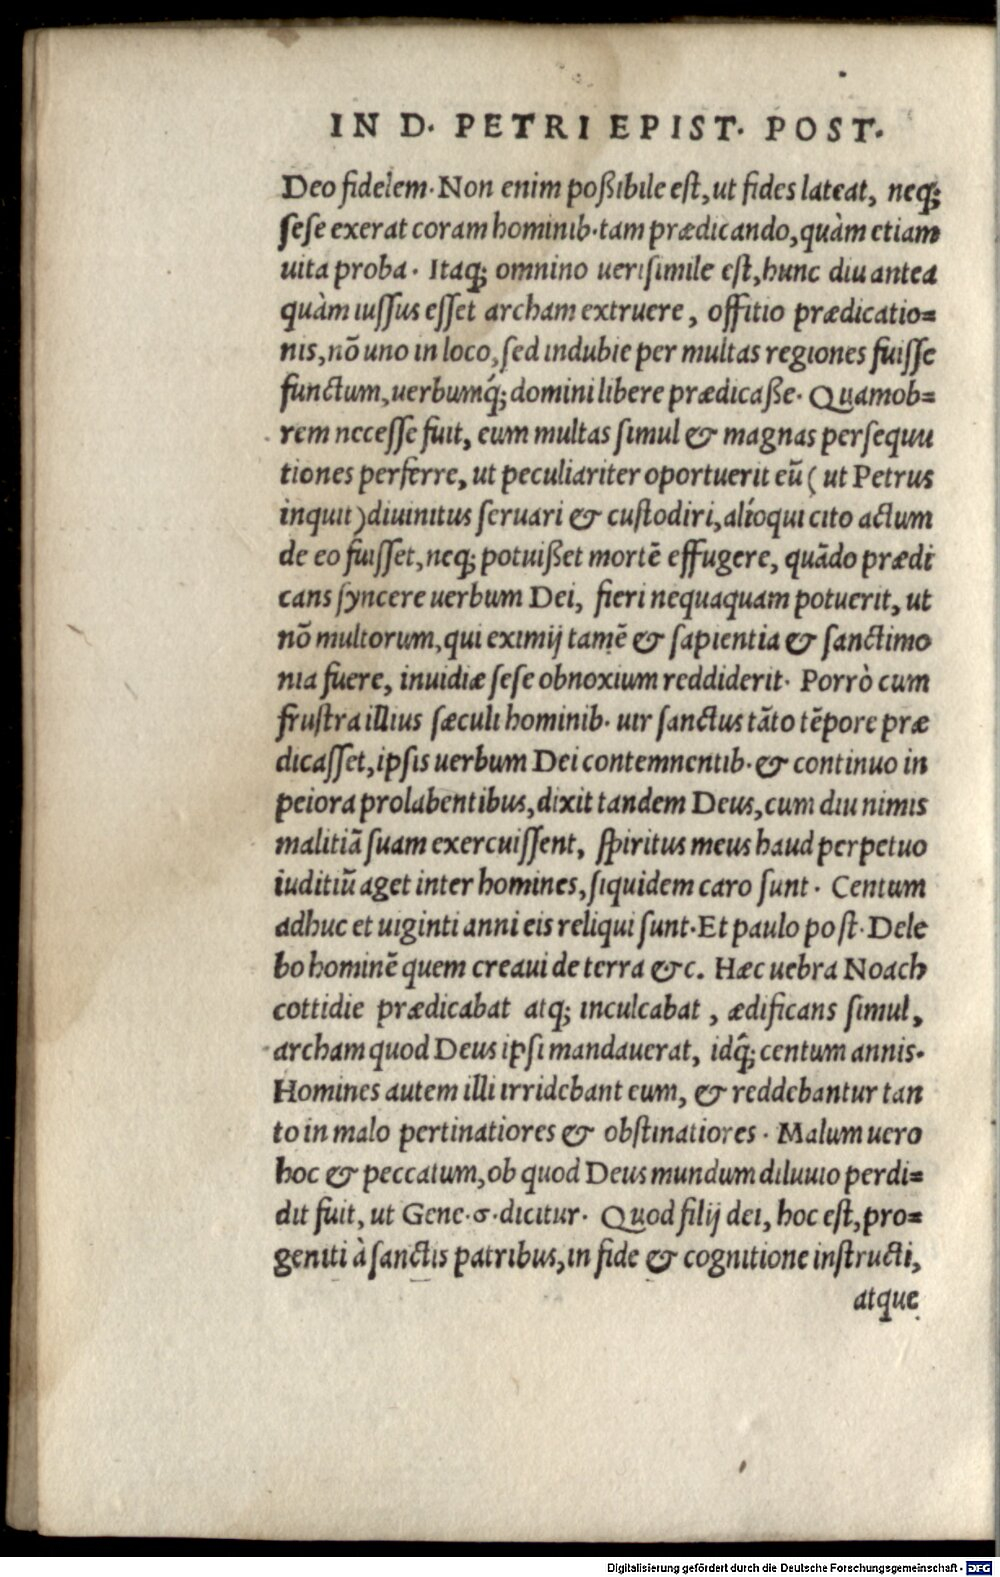 IN D. PETRI EPIST. POST.
Deo fidelem. Non enim poßibile est, ut fides lateat, neq;
sese exerat coram hominib. tam prædicando, quàm etiam
uita proba. Itaq; omnino uerisimile est, hunc diu antea
quàm iussus esset archam extruere, offitio prædicatio=
nis, nõ uno in loco, sed indubie per multas regiones fuisse
functum, uerbumq́; domini libere prædicaße. Quamob=
rem necesse fuit, eum multas simul & magnas persequu
tiones perferre, ut peculiariter oportuerit eũ ( ut Petrus
inquit ) diuinitus seruari & custodiri, alíoqui cito actum
de eo fuisset, neq; potuißet mortẽ effugere, quãdo prædi
cans syncere uerbum Dei, fieri nequaquam potuerit, ut
nõ multorum, qui eximij tamẽ & sapientia & sanctimo
nia fuere, inuidiæ sese obnoxium reddiderit. Porrò cum
frustra illius sæculi hominib. uir sanctus tãto tẽpore præ
dicasset, ipsis uerbum Dei contemnentib. & continuo in
peiora prolabentibus, dixit tandem Deus, cum diu nimis
malitiã suam exercuissent, spiritus meus haud perpetuo
iuditiũ aget inter homines, siquidem caro sunt. Centum
adhuc et uiginti anni eis reliqui sunt. Et paulo post. Dele
bo hominẽ quem creaui de terra &c. Hæc uebra Noach
cottidie prædicabat atq; inculcabat, ædificans simul,
archam quod Deus ipsi mandauerat, idq̂; centum annis.
Homines autem illi irridebant eum, & reddebantur tan
to in malo pertinatiores & obstinatiores. Malum uero
hoc & peccatum, ob quod Deus mundum diluuio perdi=
dit fuit, ut Gene. 6. dicitur. Quod filij dei, hoc est, pro=
geniti à sanctis patribus, in fide & cognitione instructi,
atque
Digitalisierung gefördert durch die Deutsche Forschungsgemeinschaft - DFG